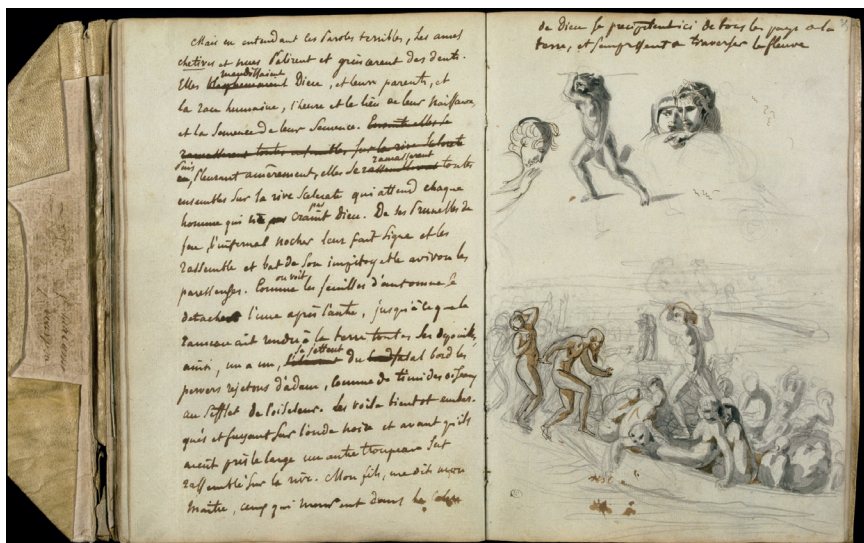 Mais en entendant ces Paroles terribles, les ames
chetives et nues Palirent et grincerent des dents.
Elles maudissaient blasphemerent Dieu, et leur parents, et
la race humaine, l'heure et le lieu de leur Naissance,
et la Semence de leur Semence. Ensuite elles se
ramasserent toutes ensembles sur la rive
Puis, Pleurant amèrement, elles se ramasserent toutes
ensembles Sur la rive Scelerate qui attend chaque
homme qui ne pas craint Dieu. De ses Prunelles de
feu l'infernal nocher leur fait Signe et les
rassemble et bat de Son impitoyable aviron les
paresseuses. Comme on voit les feuilles d'automne se
detacher l'une après l'autre, jusqu'à ce que le
rameau ait rendu à la terre toutes Ses depouilles,
ainsi, un a un, se jettent du fatal bord les
pervers rejetons d'adam, Comme de timides oiseaux
au Sifflet de l'oiseleur. Les voila bientot embar-
qués et fuyant Sur l'onde noire et avant qu'ils
aient pris le large un autre troupeau Est
rassemblé Sur la rive. Mon fils, me dit mon
Maitre, ceux qui meurent dans la
de Dieu se precipitent ici de tous les pays a la
terre, et s'empressent a traverser le fleuve